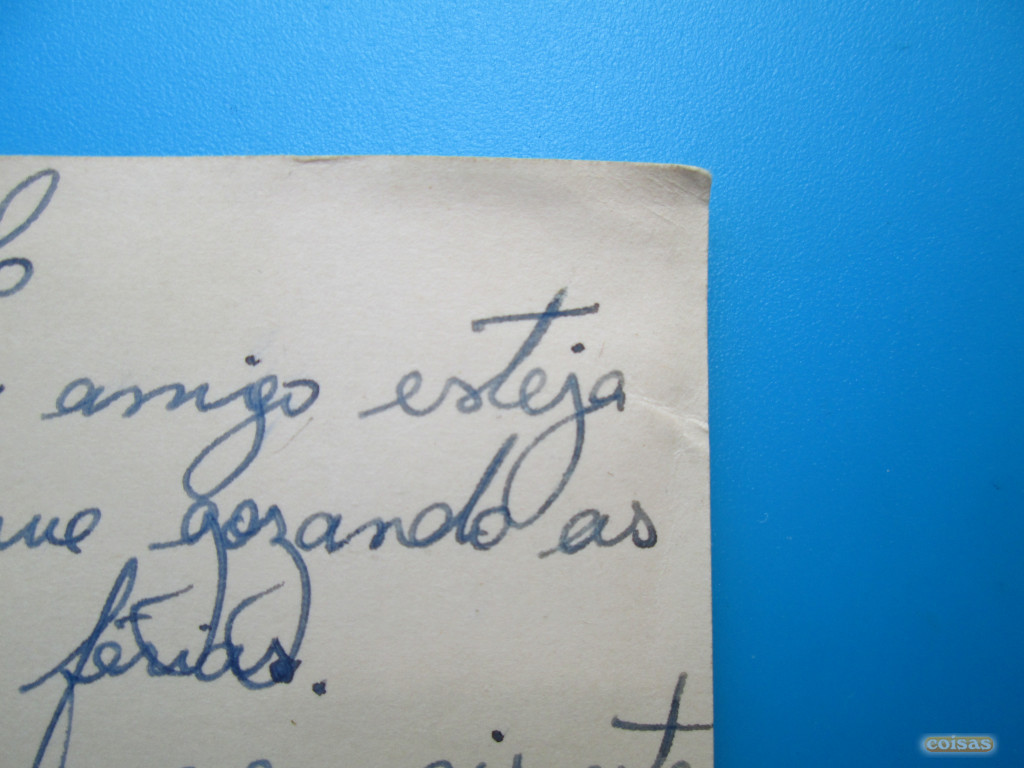 amigo esteja
gozando as
férias.
coisas